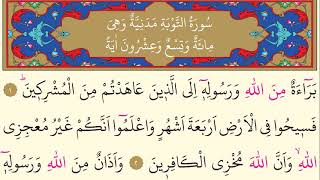 سُورَةُ التَّوْبَةِ مَدَنِيَّةٌ وَهِيَ
مِائَةٌ وَتِسْعٌ وَعِشْرُونَ اٰيَةً
بَرَٓاءَةٌ مِنَ اللّٰهِ وَرَسُولِهٖٓ اِلَى الَّذٖينَ عَاهَدْتُمْ مِنَ الْمُشْرِكٖينَؕ ﴿١﴾
فَسٖيحُوا فِي الْاَرْضِ اَرْبَعَةَ اَشْهُرٍ وَاعْلَمُٓوا اَنَّكُمْ غَيْرُ مُعْجِزِي
اللّٰهِۙ وَاَنَّ اللّٰهَ مُخْزِي الْكَافِرٖينَ ﴿٢﴾ وَاَذَانٌ مِنَ اللّٰهِ وَرَسُولِهٖٓ